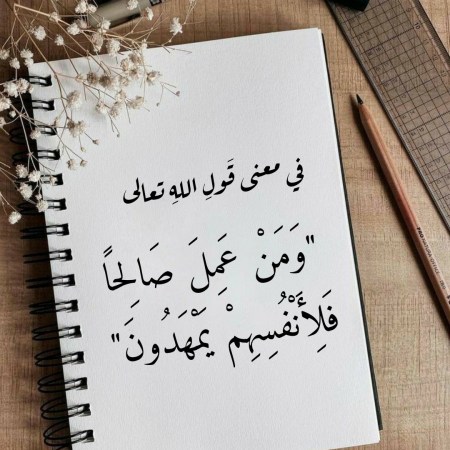 في معنى قَولِ اللهِ تعالى
"وَمَنْ عَمِلَ صَالِحًا
فَلِأَنْفُسِهِمْ يَمْهَدُونَ"